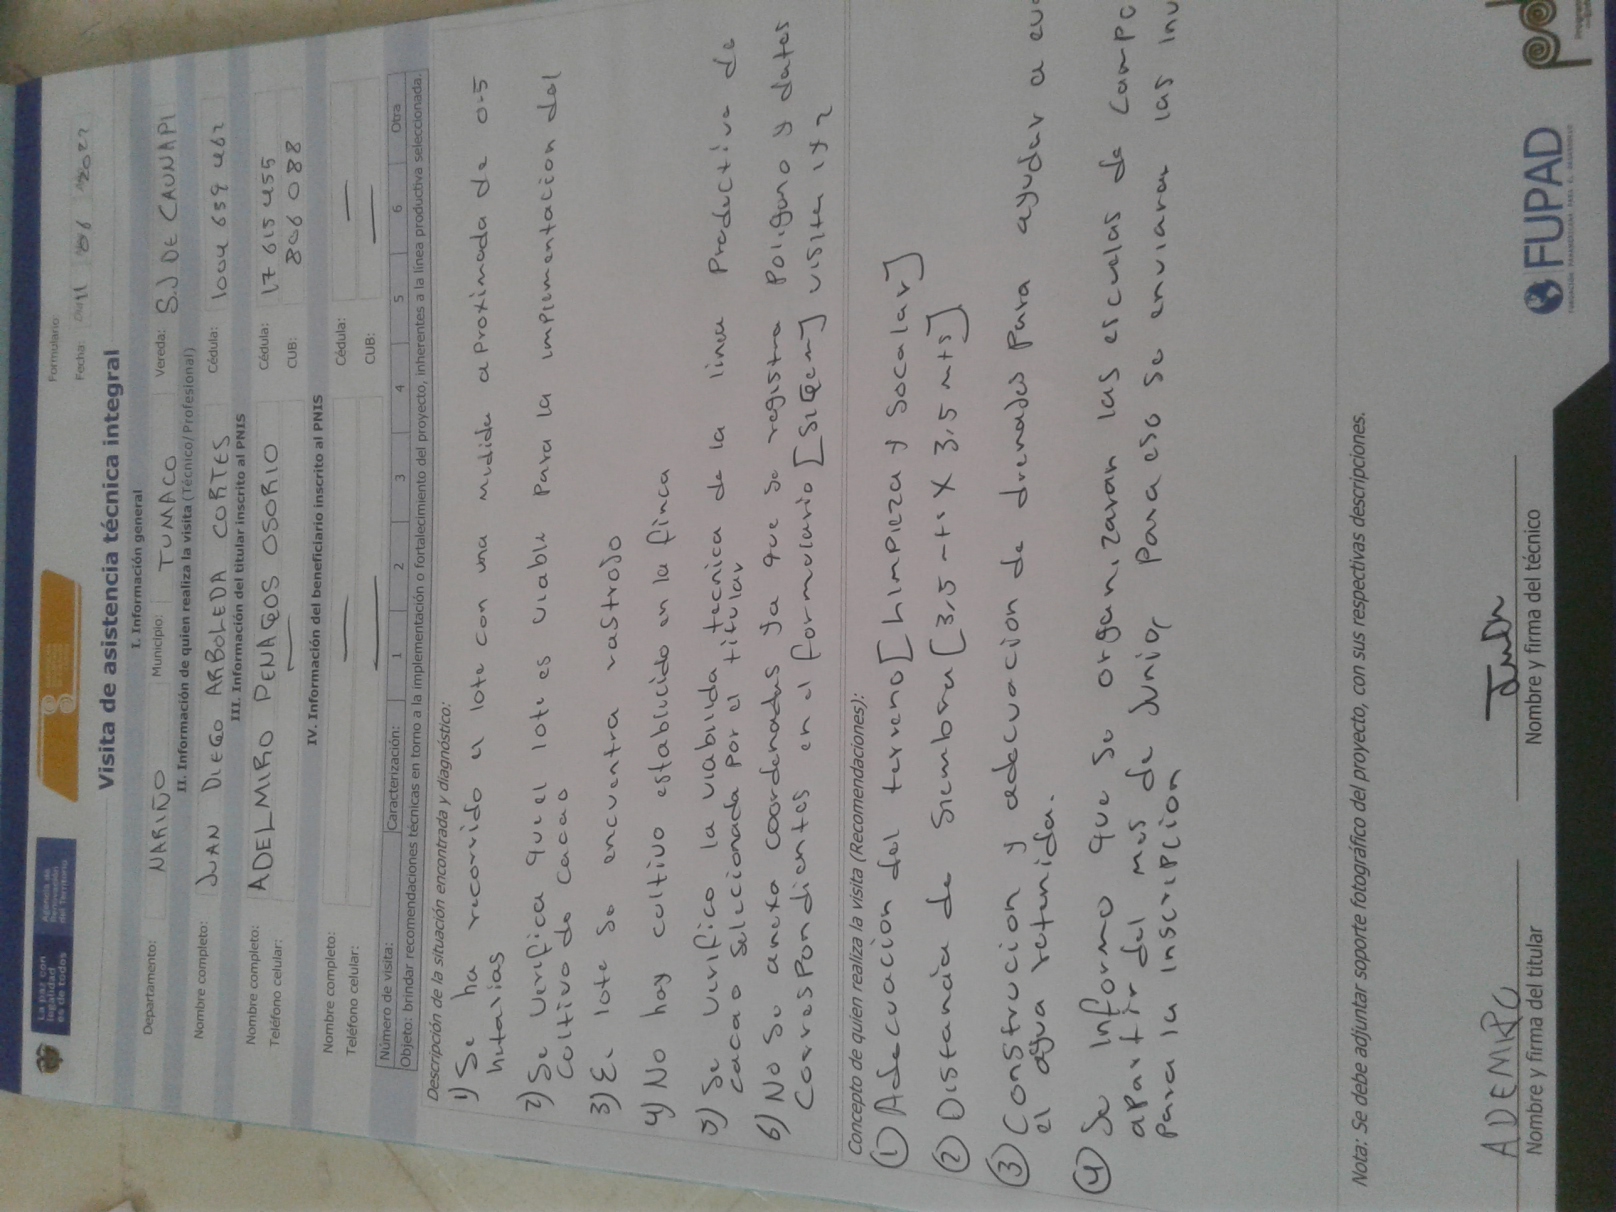 La paz con
legalidad
es de todos
Agencia de
Renovación
del Territorio
Formulario:
Fecha: 06 2022
Visita de asistencia técnica integral
I. Información general
Departamento: NARIÑO Municipio: TUMACO Vereda: S.J DE CAUNAPI
II. Información de quien realiza la visita (Técnico/Profesional)
Nombre completo: JUAN DIEGO ARBOLEDA CORTES Cédula: 1004 659 462
III. Información del titular inscrito al PNIS
Nombre completo: ADELMIRO PENAGOS OSORIO Cédula: 17 615 455
Teléfono celular: — CUB: 806088
IV. Información del beneficiario inscrito al PNIS
Nombre completo: — Cédula: —
Teléfono celular: — CUB: —
Número de visita: Caracterización: 1 2 3 4 5 6 Otra
Objeto: brindar recomendaciones técnicas en torno a la implementación o fortalecimiento del proyecto, inherentes a la línea productiva seleccionada.
Descripción de la situación encontrada y diagnóstico:
1) Se ha recorrido el lote con una medida aproximada de 0.5
hetarias
2) Se verifica que el lote es viable para la implementacion del
cultivo de cacao
3) El lote se encuentra rastrojo
4) No hay cultivo establecido en la finca
5) Se verifico la viabilida tecnica de la linea productiva de
cacao seleccionada por el titular
6) No se anexa coordenadas ya que se registra poligono y datos
correspondientes en el formulario [SIGCM] visita 1 y 2
Concepto de quien realiza la visita (Recomendaciones):
① Adecuacion del terreno [Limpieza y socalar]
② Distancia de siembra [3,5 mts X 3,5 mts]
③ Construcion y adecuacion de drenajes para ayudar a
el agua retenida.
④ Se informo que se organizaran las escuelas de campo
apartir del mes de Junio, para eso se enviaran las
para la inscripcion
Nota: Se debe adjuntar soporte fotográfico del proyecto, con sus respectivas descripciones.
Nombre y firma del titular
Nombre y firma del técnico
FUPAD
FUNDACIÓN PANAMERICANA PARA EL DESARROLLO